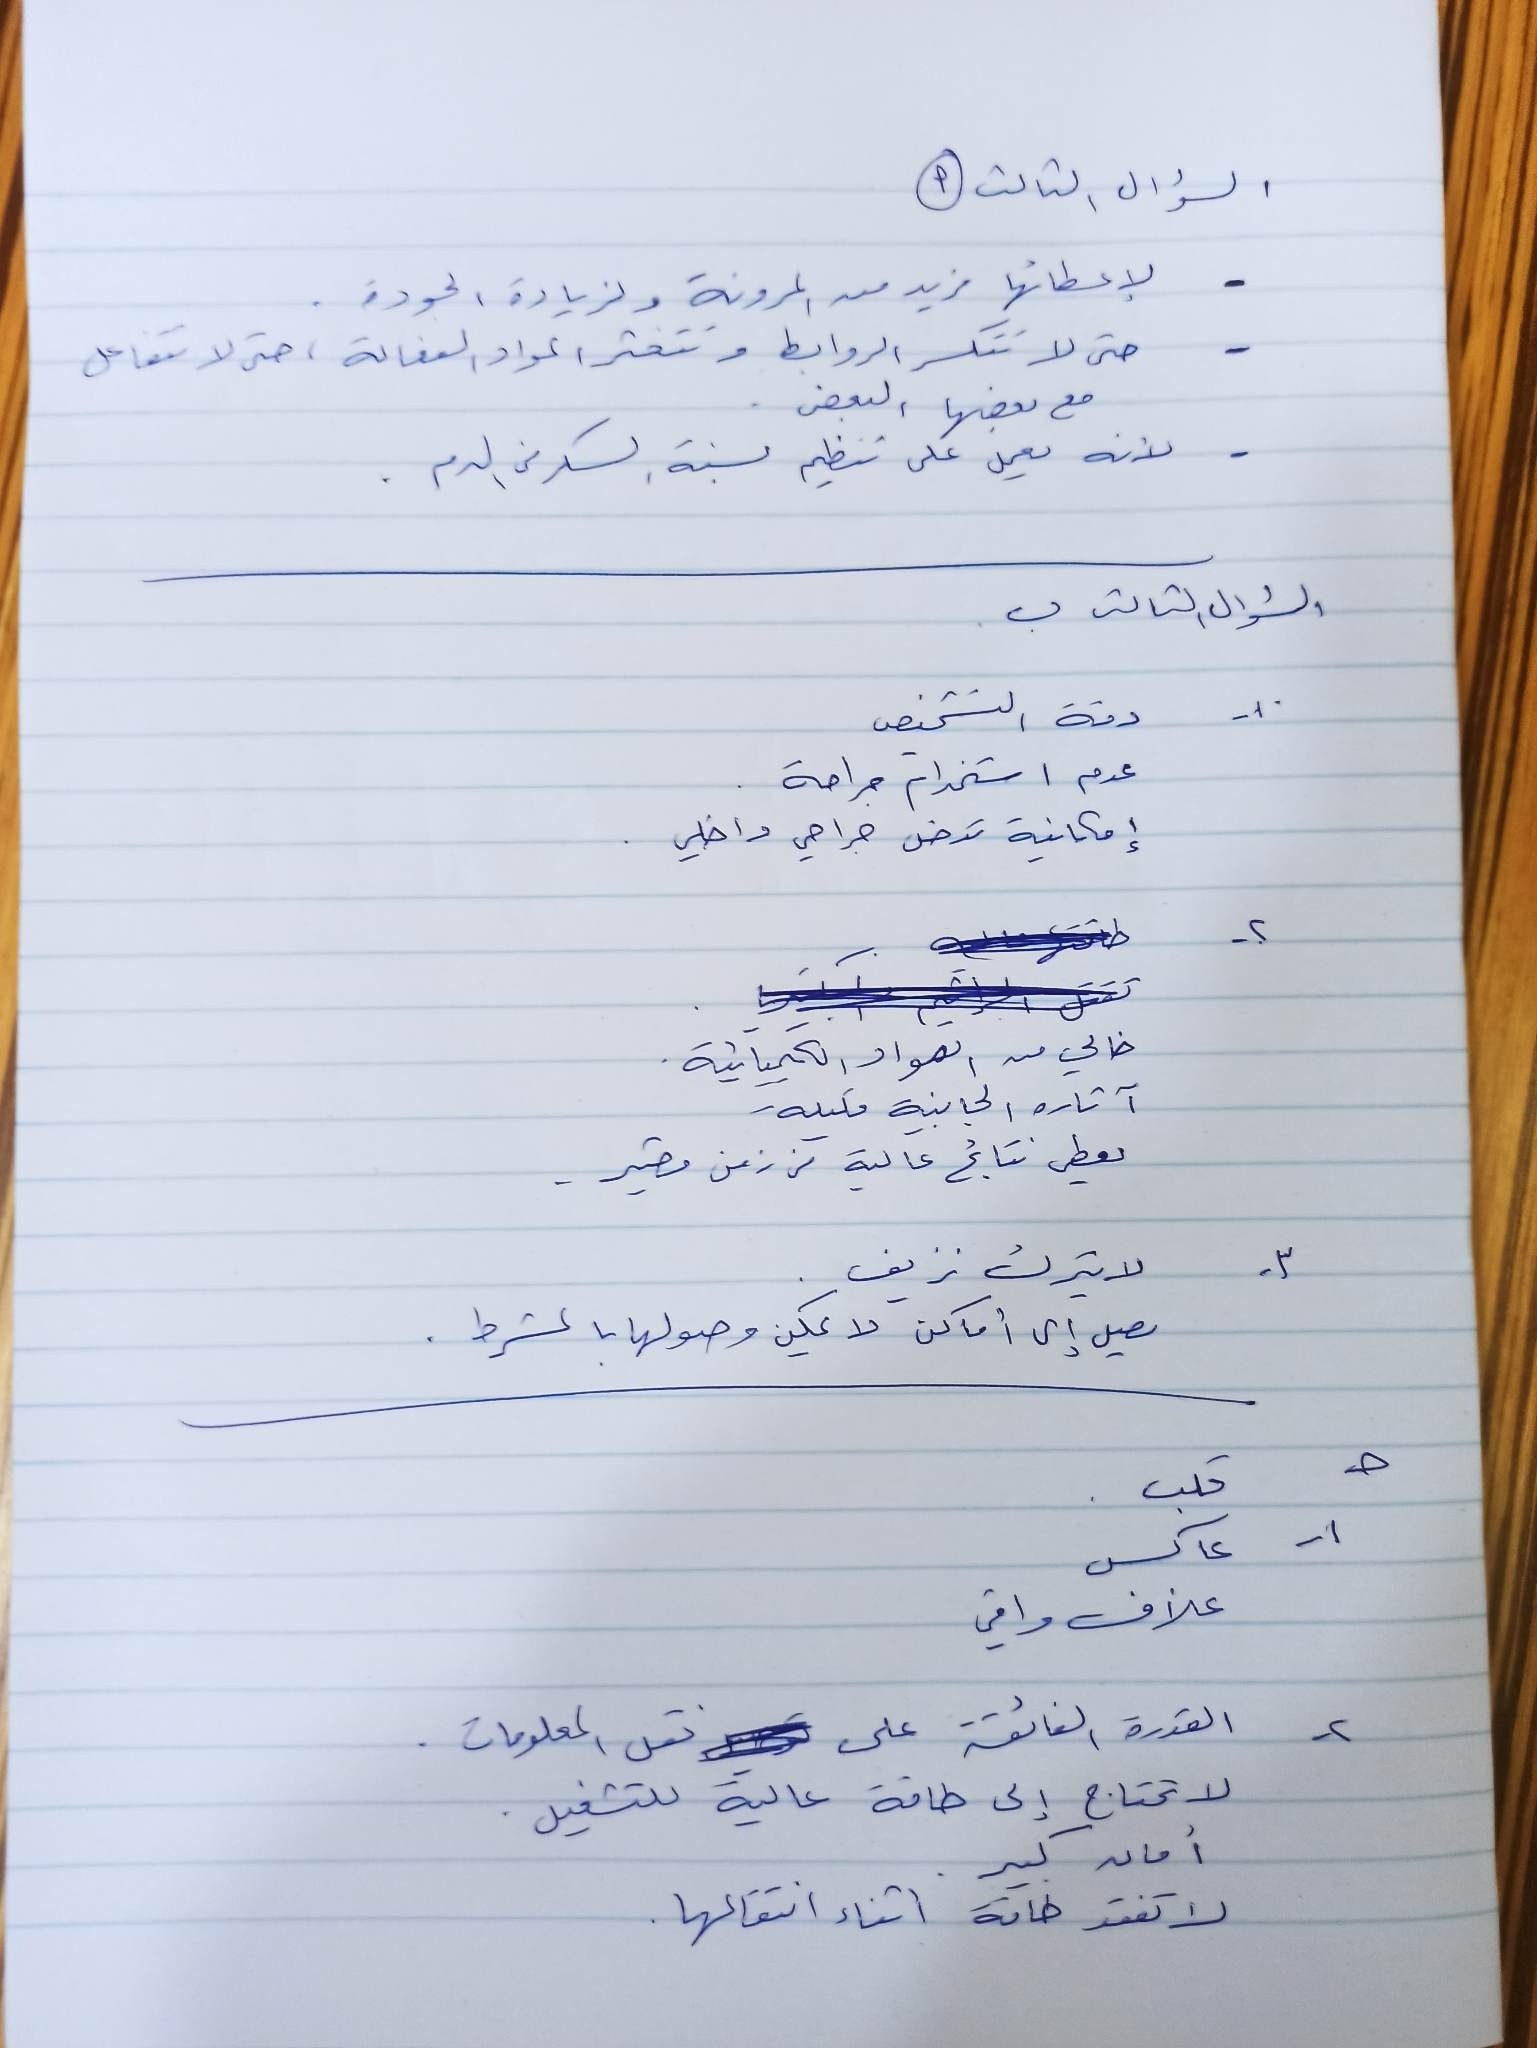 السؤال الثالث أ
- لإعطائها مزيد من المرونة ولزيادة الجودة .
- حتى لا تتكسر الروابط و المواد الفعالة ، حتى لا تتفاعل
مع بعضها البعض .
- لأنه يعمل على تنظيم نسبة السكر في الدم .
السؤال الثالث ب .
١- دقة التشخيص
عدم استخدام جراحة .
إمكانية تدخل جراحي داخلي .
٢-
خالي من المواد الكيميائية .
آثاره الجانبية قليلة
يعطي نتائج عالية في زمن قصير -
٣- لا يترك نزيف .
يصل إلى أماكن لا يمكن وصولها بالمشرط .
حـ قلب .
١- عاكس
غلاف واقي
٢- القدرة الفائقة على نقل المعلومات .
لا تحتاج إلى طاقة عالية للتشغيل .
أمان كبير .
لا تفقد طاقة أثناء انتقالها .